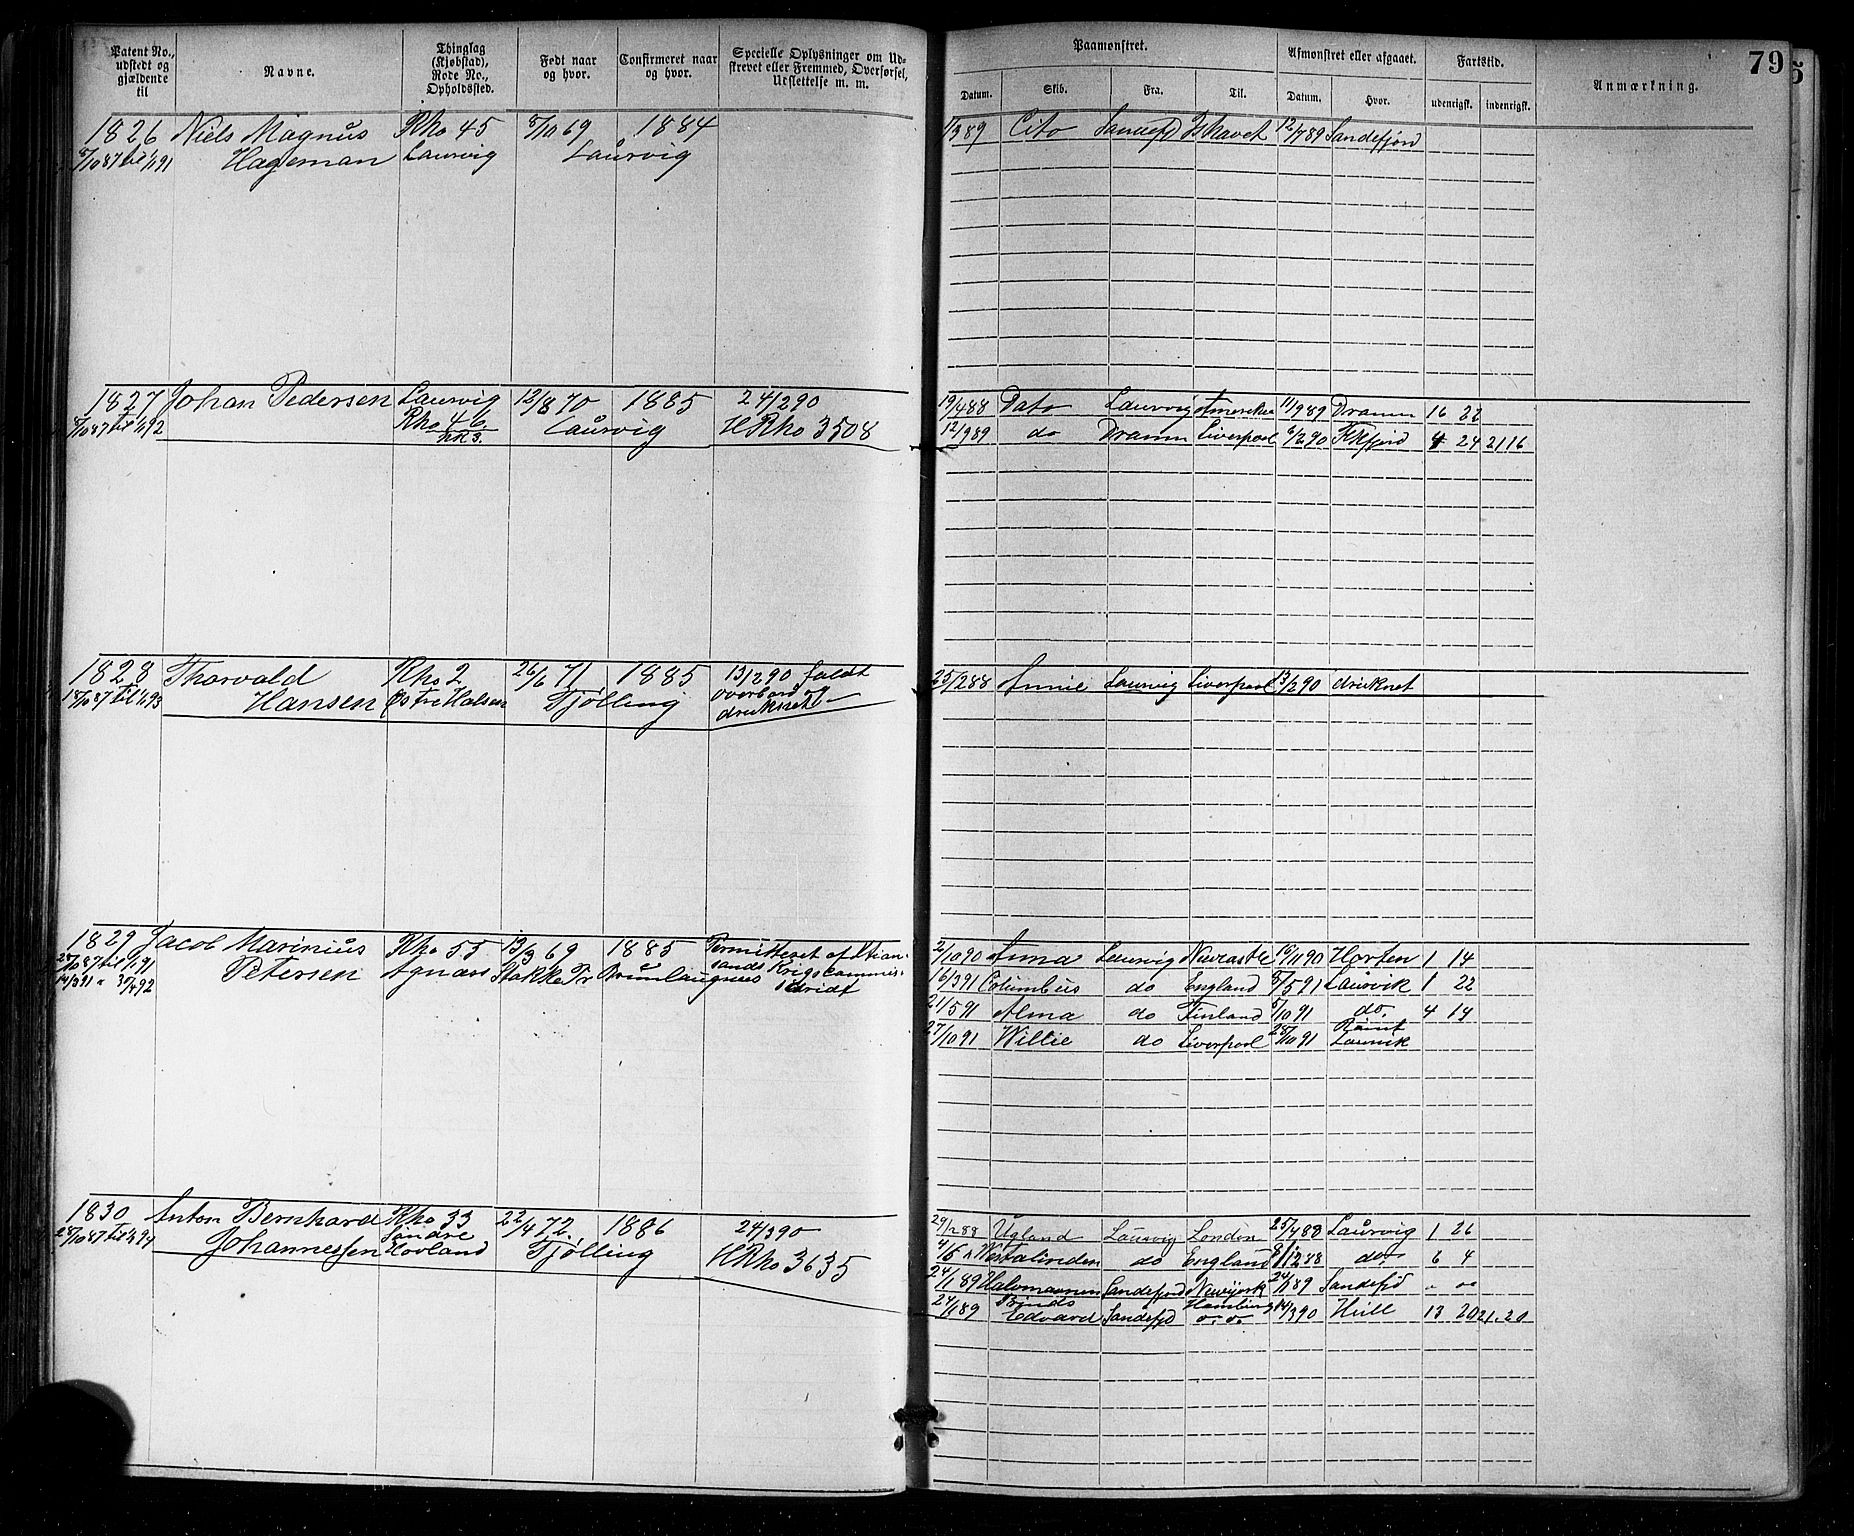 Patent No., udstedt og gjældende til
Navne.
Thinglag (Kjøbstad), Rode No., Opholdssted.
Født naar og hvor.
Confirmeret naar og hvor.
Specielle Oplysninger om Udskrevet eller Fremmed, Overførsel, Udslettelse m. m.
Paamønstret.
Datum. Skib. Fra. Til.
Afmønstret eller afgaaet.
Datum. Hvor.
Fartstid.
udenrigsk. indenrigsk.
Anmærkning.
79
5
1826 Niels Magnus Rho 45 8/10 69 1884
8/10 87 til 1/1 91 Hageman Laurvig Laurvig
1/3 89 Cito Ishavet 12/7 89 Sandefjord
1827 Johan Pedersen Laurvig 12/8 70 1885 24/2 90
8/10 87 til 1/1 92 Rho 46 Laurvig HRho 3508
19/4 88 Dato Laurvig Amerika 11/9 89 Dramn 16 22
12/9 89 do Dramn Liverpool 6/2 90 4 24 21 16
1828 Thorvald Rho 2 26/6 71 1885 13/2 90 faldt
18/10 87 til 1/1 93 Hansen Østre Halsen Tjølling overbord og
druknet
25/2 88 Annie Laurvig Liverpool 13/2 90 druknet
1829 Jacob Marinius Rho 55 13/3 69 1885 Permitteret af Xtian-
28/10 87 til 1/1 91 Petersen Agnæs Stokke Pr Brunlaugnæs sands Krigscommis-
14/3 91 " 30/4 92 sariat
2/10 90 Anna Laurvig Newcastle 19/11 90 Horten 1 14
16/3 91 Columbus do England 8/5 91 Laurvik 1 22
21/5 91 Alma do Finland 5/10 91 do. 4 14
27/10 91 Willie do Liverpool 28/10 91 Rømt
Laurvik
1830 Anton Bernhard Rho 33 22/4 72. 1886 24/3 90
28/10 87 til 1/1 94 Johannessen Søndre Hovland Tjølling HRho 3635
29/2 88 Ugland Laurvig London 25/4 88 Laurvig 1 26
4/5 " do England 8/12 88 do. 6 4
24/1 89 Sandefjord Newyork 24/1 89 Sandefjd " "
24/1 89 Prinds
Edvard Sandefjd Hamburg o. o. 14/3 90 Hull 13 20 21. 20